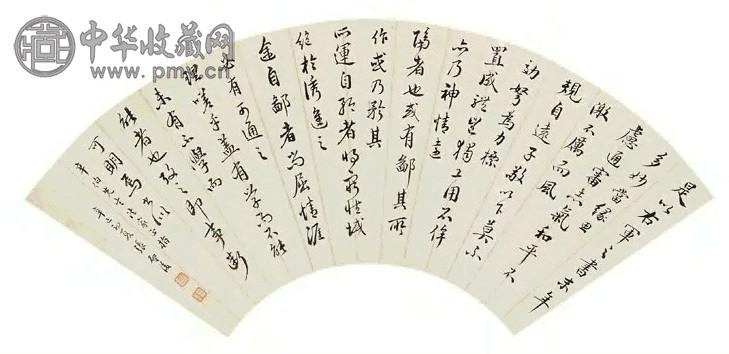 中华收藏网
www.pmcn.cn
是以右軍之書末年
多妙當緣思
慮通審志氣和平不
激不厲而風
規自遠子敬以下莫不
鼓努為力標
置成體豈獨工用不侔
亦乃神情懸
隔者也或有鄙其所
作或乃矜其
所運自矜者將窮性域
絕於誘進之
途自鄙者尚屈情涯
必有可通之
理嗟乎蓋有学而不能
未有不學而
能者也攷之即事斷
可明焉
先生法家正